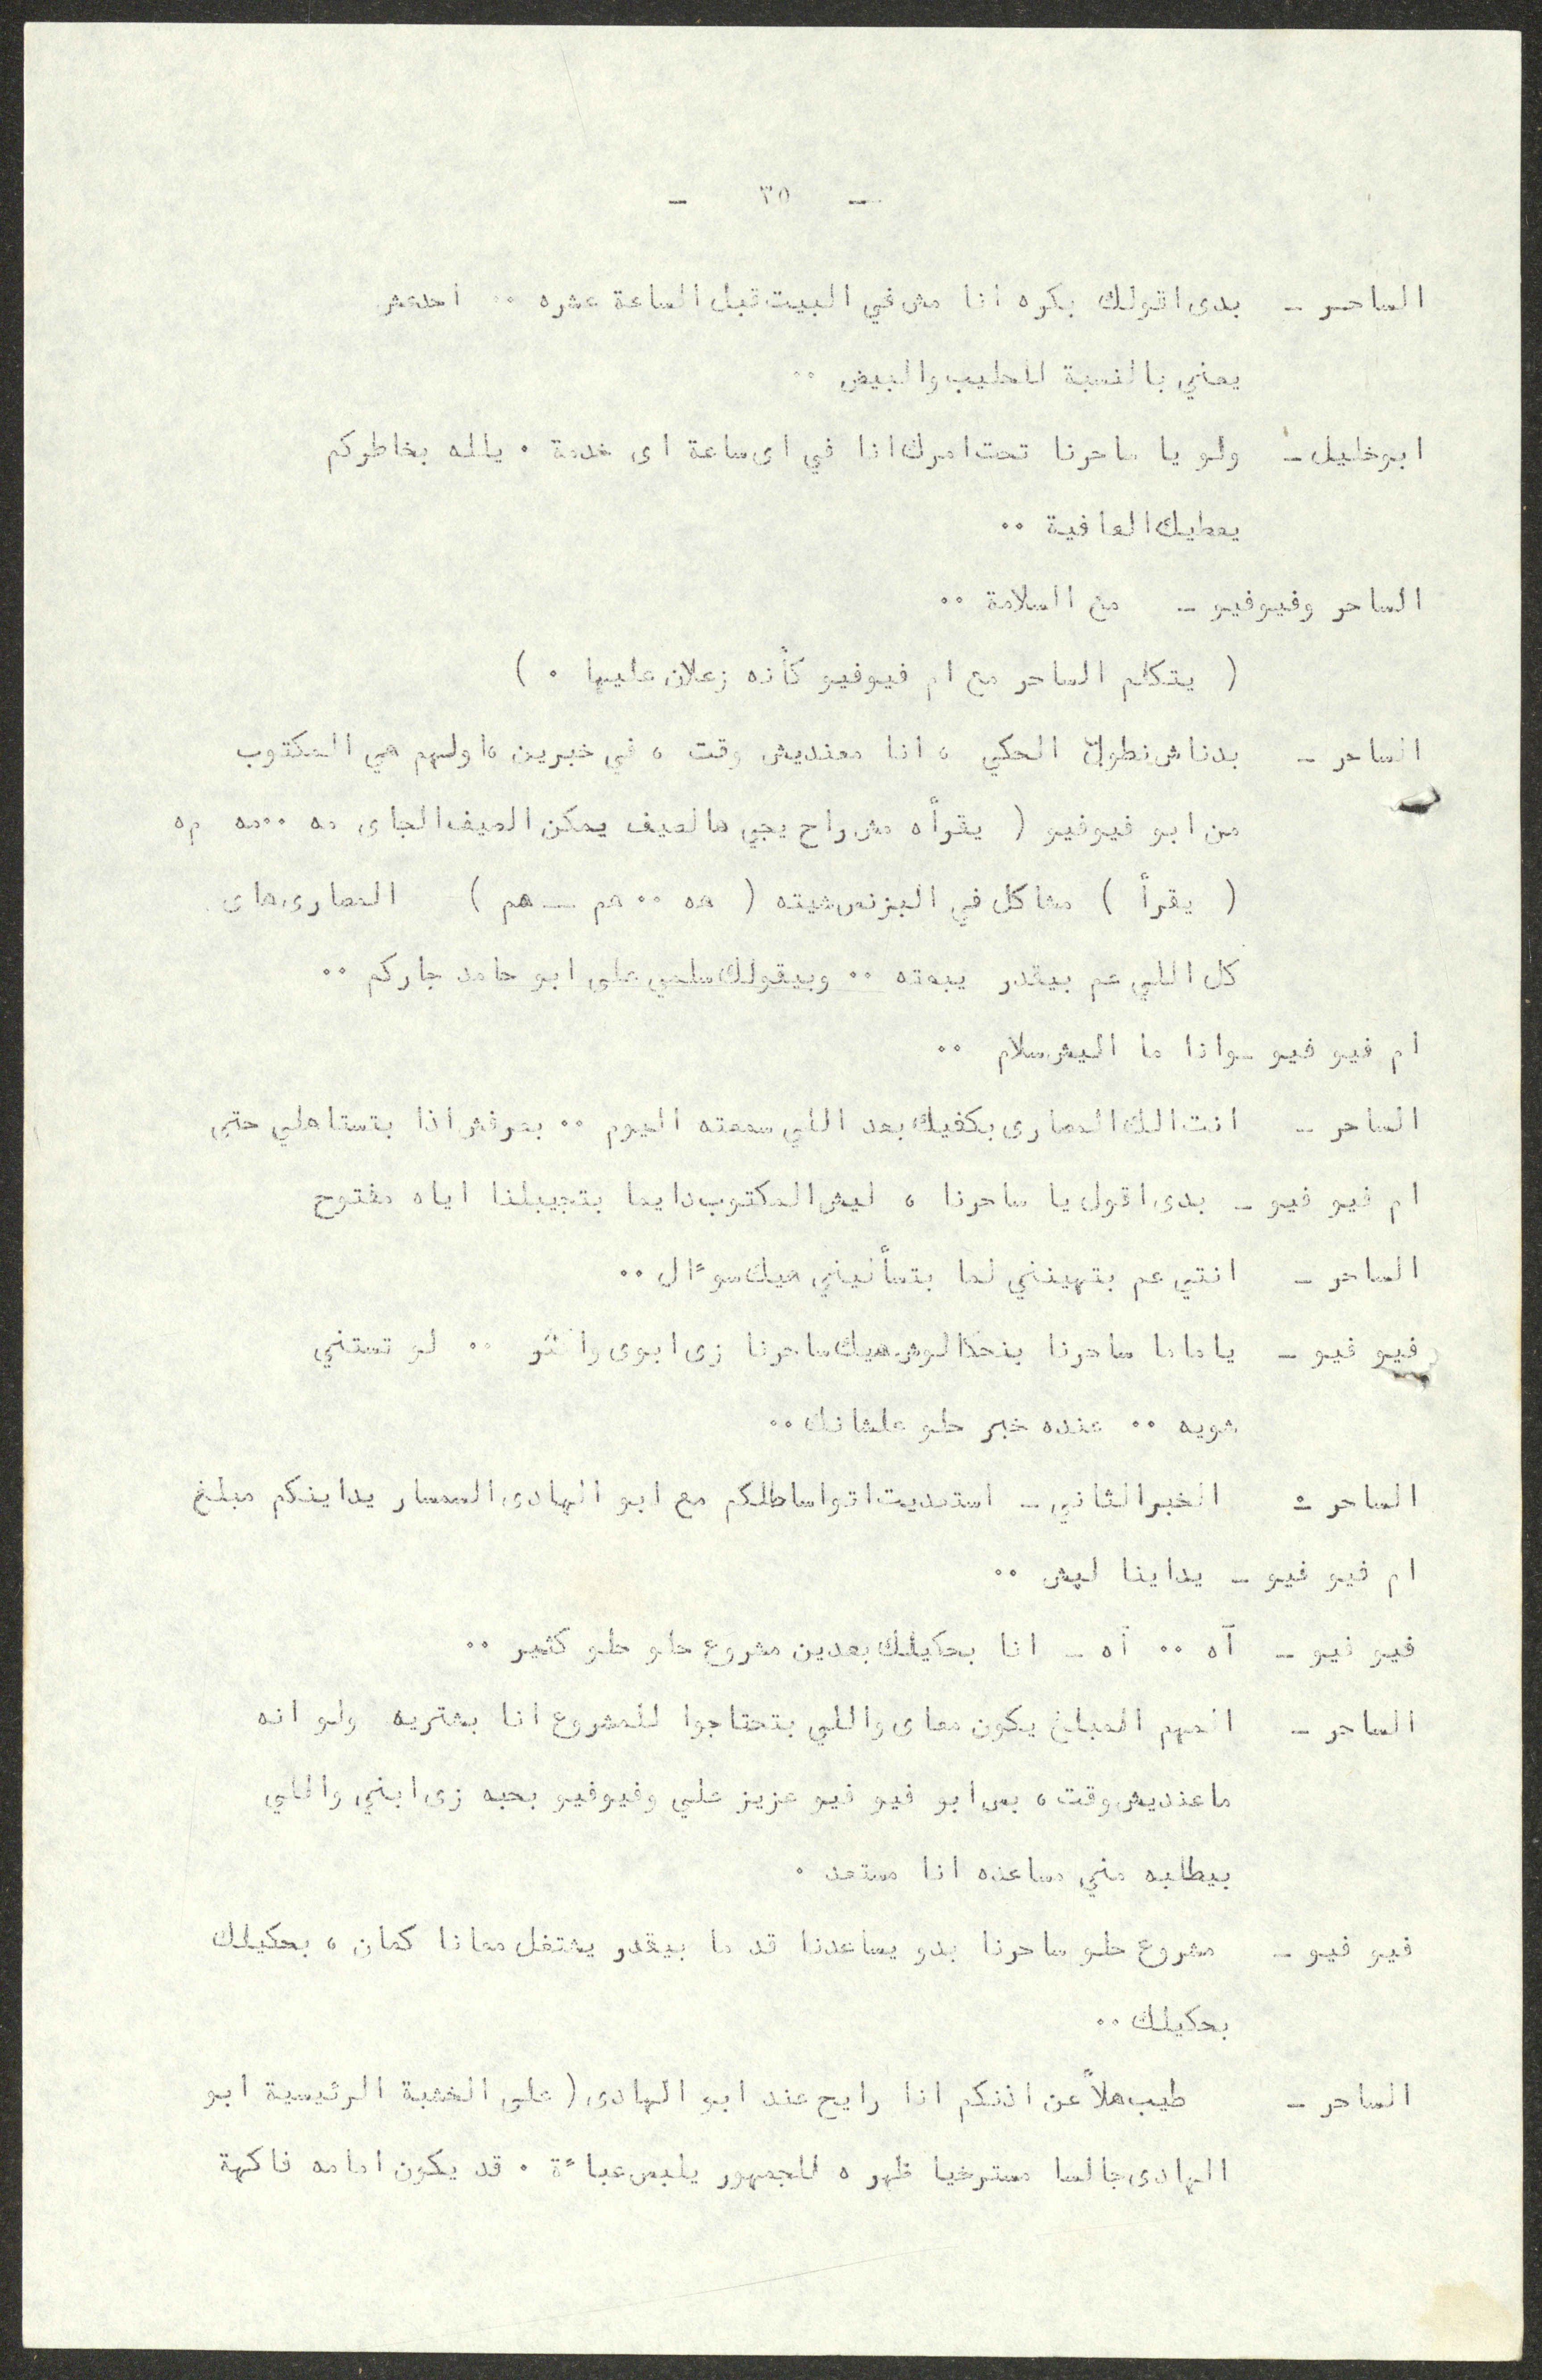 - ٣٥ -
الساحر - بدى اقولك بكره انا مش في البيت قبل الساعة عشره ٠٠ احدعش
يعني بالنسبة للحليب والبيض ٠٠
ابوخليل - ولو يا ساحرنا تحت امرك انا في اى ساعة اى خدمة ٠ يالله بخاطركم
يعطيك العافية ٠٠
الساحر وفيوفيو - مع السلامة ٠٠
( يتكلم الساحر مع ام فيوفيو كأنه زعلان عليها ٠ )
الساحر - بدناش نطول الحكي ، انا معنديش وقت ، في خبرين ، اولهم هي المكتوب
من ابو فيوفيو ( يقرأ ) مش راح يجي هالصيف يمكن الصيف الجاى مه ٠٠مه مه
( يقرأ ) مشاكل في البزنس شيته ( هه ٠٠ هم - هم ) المصارى هاى
كل اللي عم بيقدر يبعته ٠٠ وبيقولك سلمي على ابو حامد جاركم ٠٠
ام فيو فيو - وانا ما اليش سلام ٠٠
الساحر - انت الك المصارى بكفيك بعد اللي سمعته اليوم ٠٠ بعرفش اذا بتستاهلي حتى
ام فيو فيو - بدى اقول يا ساحرنا ، ليش المكتوب دايما بتجيبلنا اياه مفتوح
الساحر - انتي عم بتهينني لما بتسأليني هيك سوءال ٠٠
فيو فيو - يا ماما ساحرنا بنحكالوش هيك ساحرنا زى ابوى واكثر ٠٠ لو تستني
شويه ٠٠ عنده خبر حلو علشانك ٠٠
الساحر - الخبر الثاني - استعديت اتواسطلكم مع ابو الهادى السمسار يداينكم مبلغ
ام فيو فيو - يداينا ليش ٠٠
فيو فيو - آه ٠٠ آه - انا بحكيلك بعدين مشروع حلو حلو كثير ٠٠
الساحر - المهم المبلغ يكون معاى واللي بتحتاجوا للمشروع انا بشتريه ولو انه
ما عنديش وقت ، بس ابو فيو فيو عزيز علي وفيوفيو بحبه زى ابني واللي
بيطلبه مني مساعده انا مستعد ٠
فيو فيو - مشروع حلو ساحرنا بدو يساعدنا قد ما بيقدر يشتغل معانا كمان ، بحكيلك
بحكيلك ٠٠
الساحر - طيب هلأ عن اذنكم انا رايح عند ابو الهادى ( على الخشبة الرئيسية ابو
الهادى جالسا مسترخيا ظهره للجمهور يلبس عباءة ٠ قد يكون امامه فاكهة